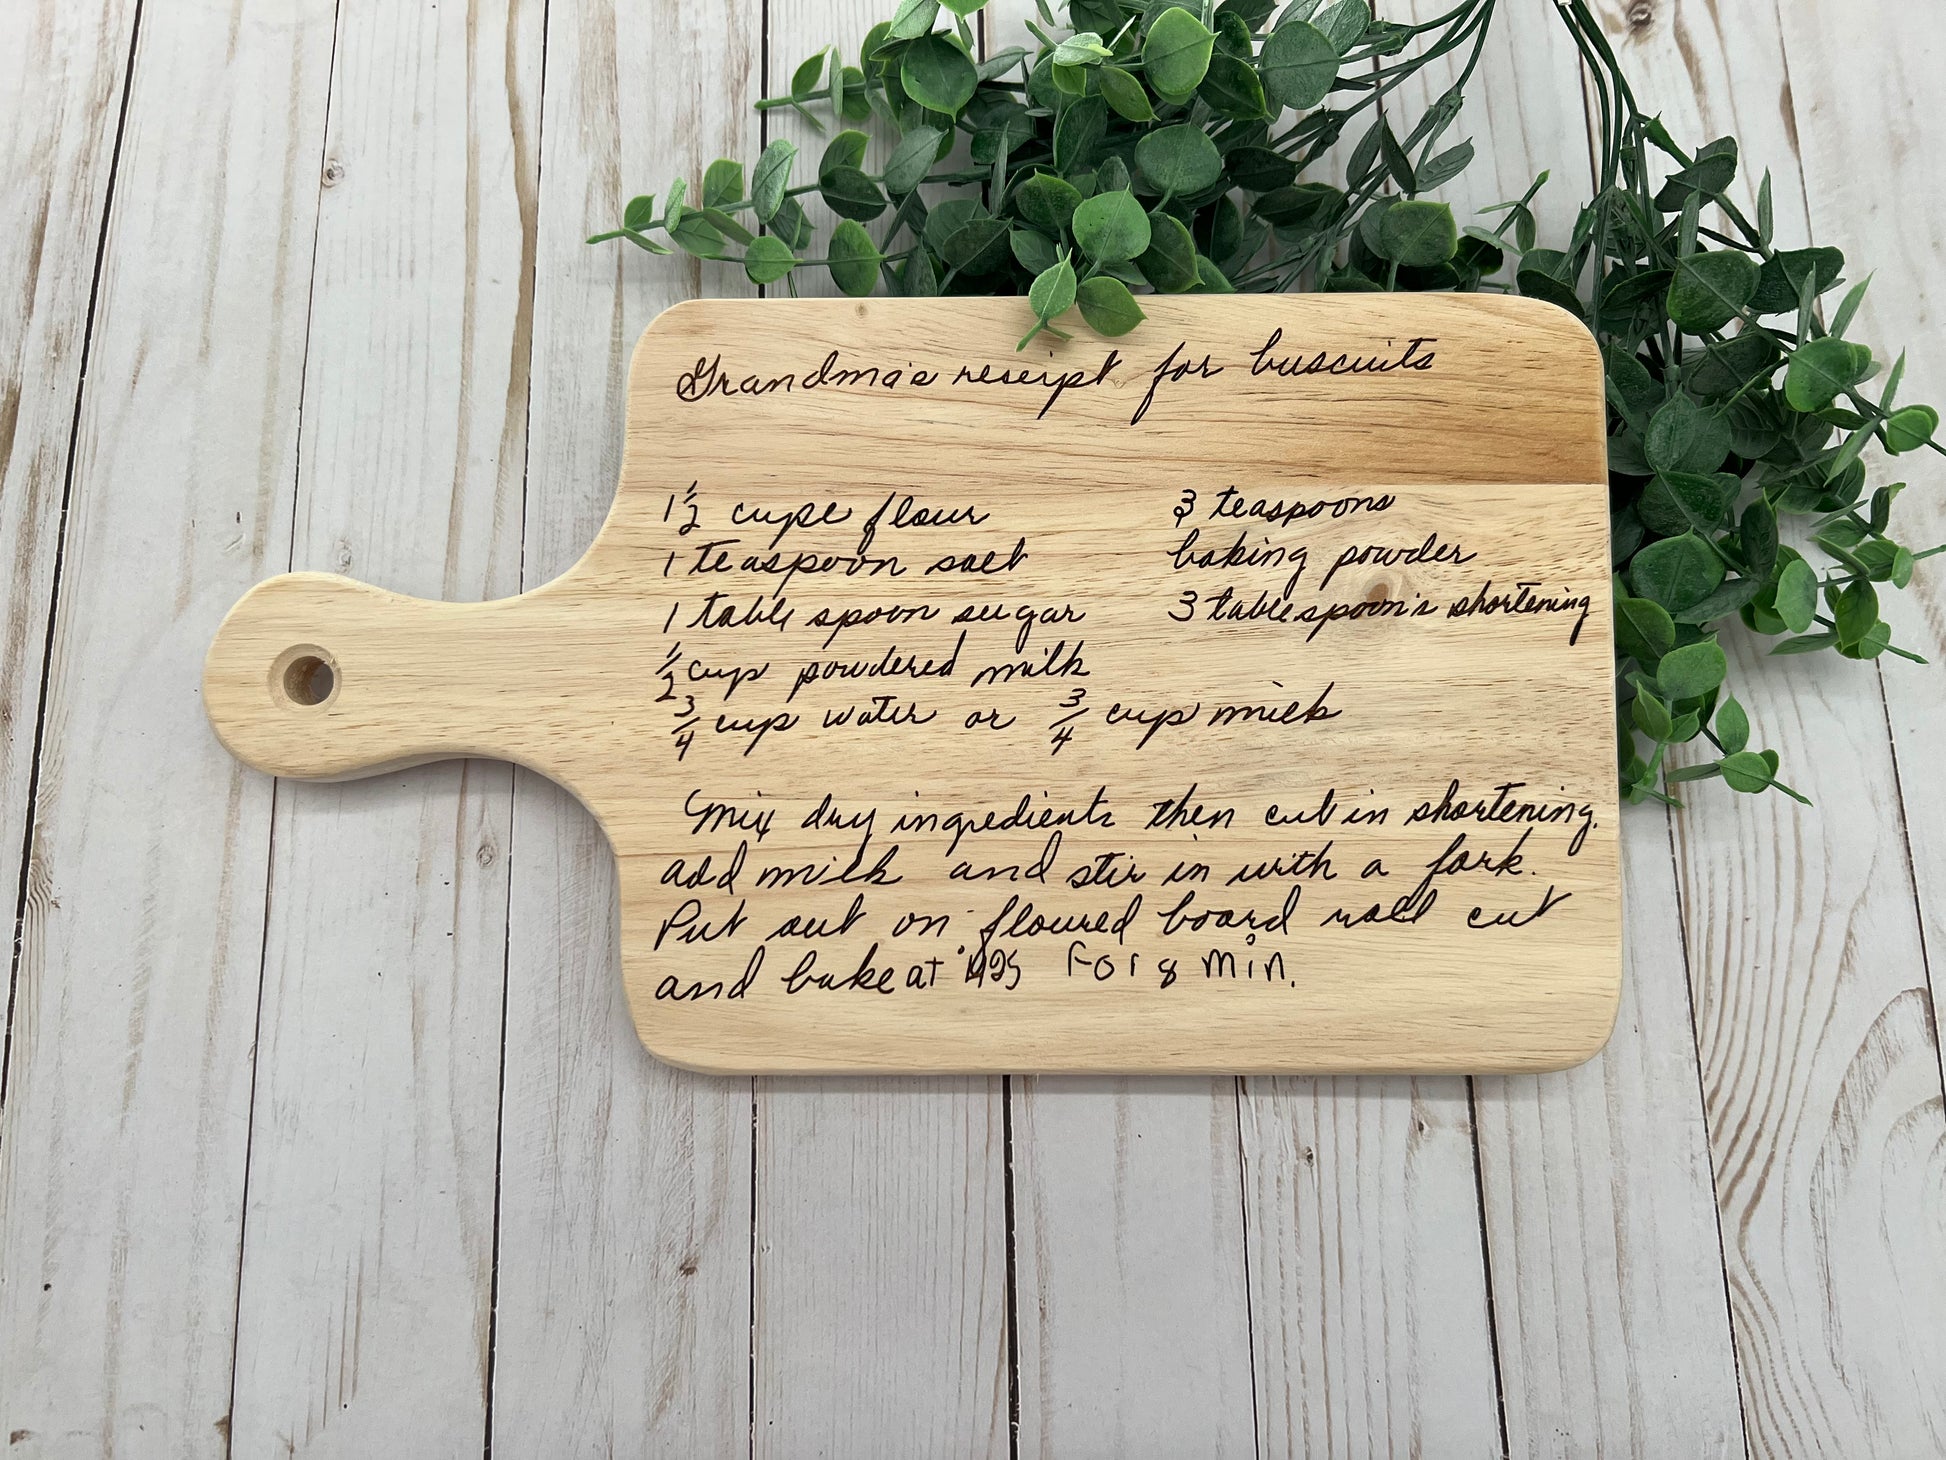 Grandma's receipt for buscuits
1 1/2 cups flour
1 teaspoon salt
1 table spoon sugar
1/2 cup powdered milk
3/4 cup water or 3/4 cup milk
3 teaspoons
baking powder
3 tablespoon's shortening
Mix dry ingredients then cut in shortening.
add milk and stir in with a fork.
Put out on floured board roll cut
and bake at 425 For 8 min.